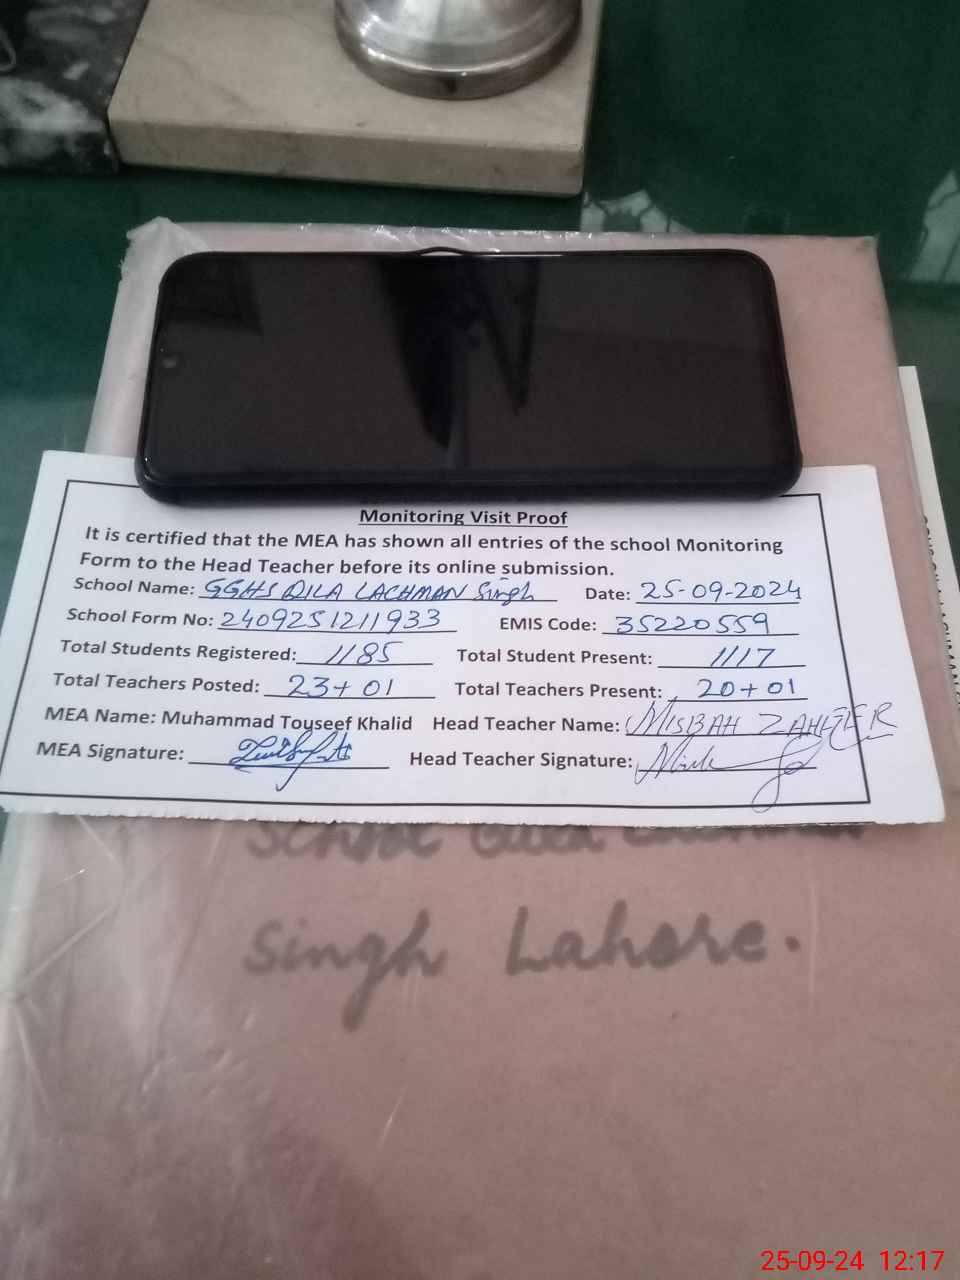 Monitoring Visit Proof
It is certified that the MEA has shown all entries of the school Monitoring
Form to the Head Teacher before its online submission.
School Name: GGHS QILA LACHMAN Singh Date: 25-09-2024
School Form No: 2409251211933 EMIS Code: 35220559
Total Students Registered: 1185 Total Student Present: 1117
Total Teachers Posted: 23+01 Total Teachers Present: 20+01
MEA Name: Muhammad Touseef Khalid Head Teacher Name: MISBAH ZAHEER
MEA Signature: Head Teacher Signature:
School
Singh Lahore.
25-09-24 12:17